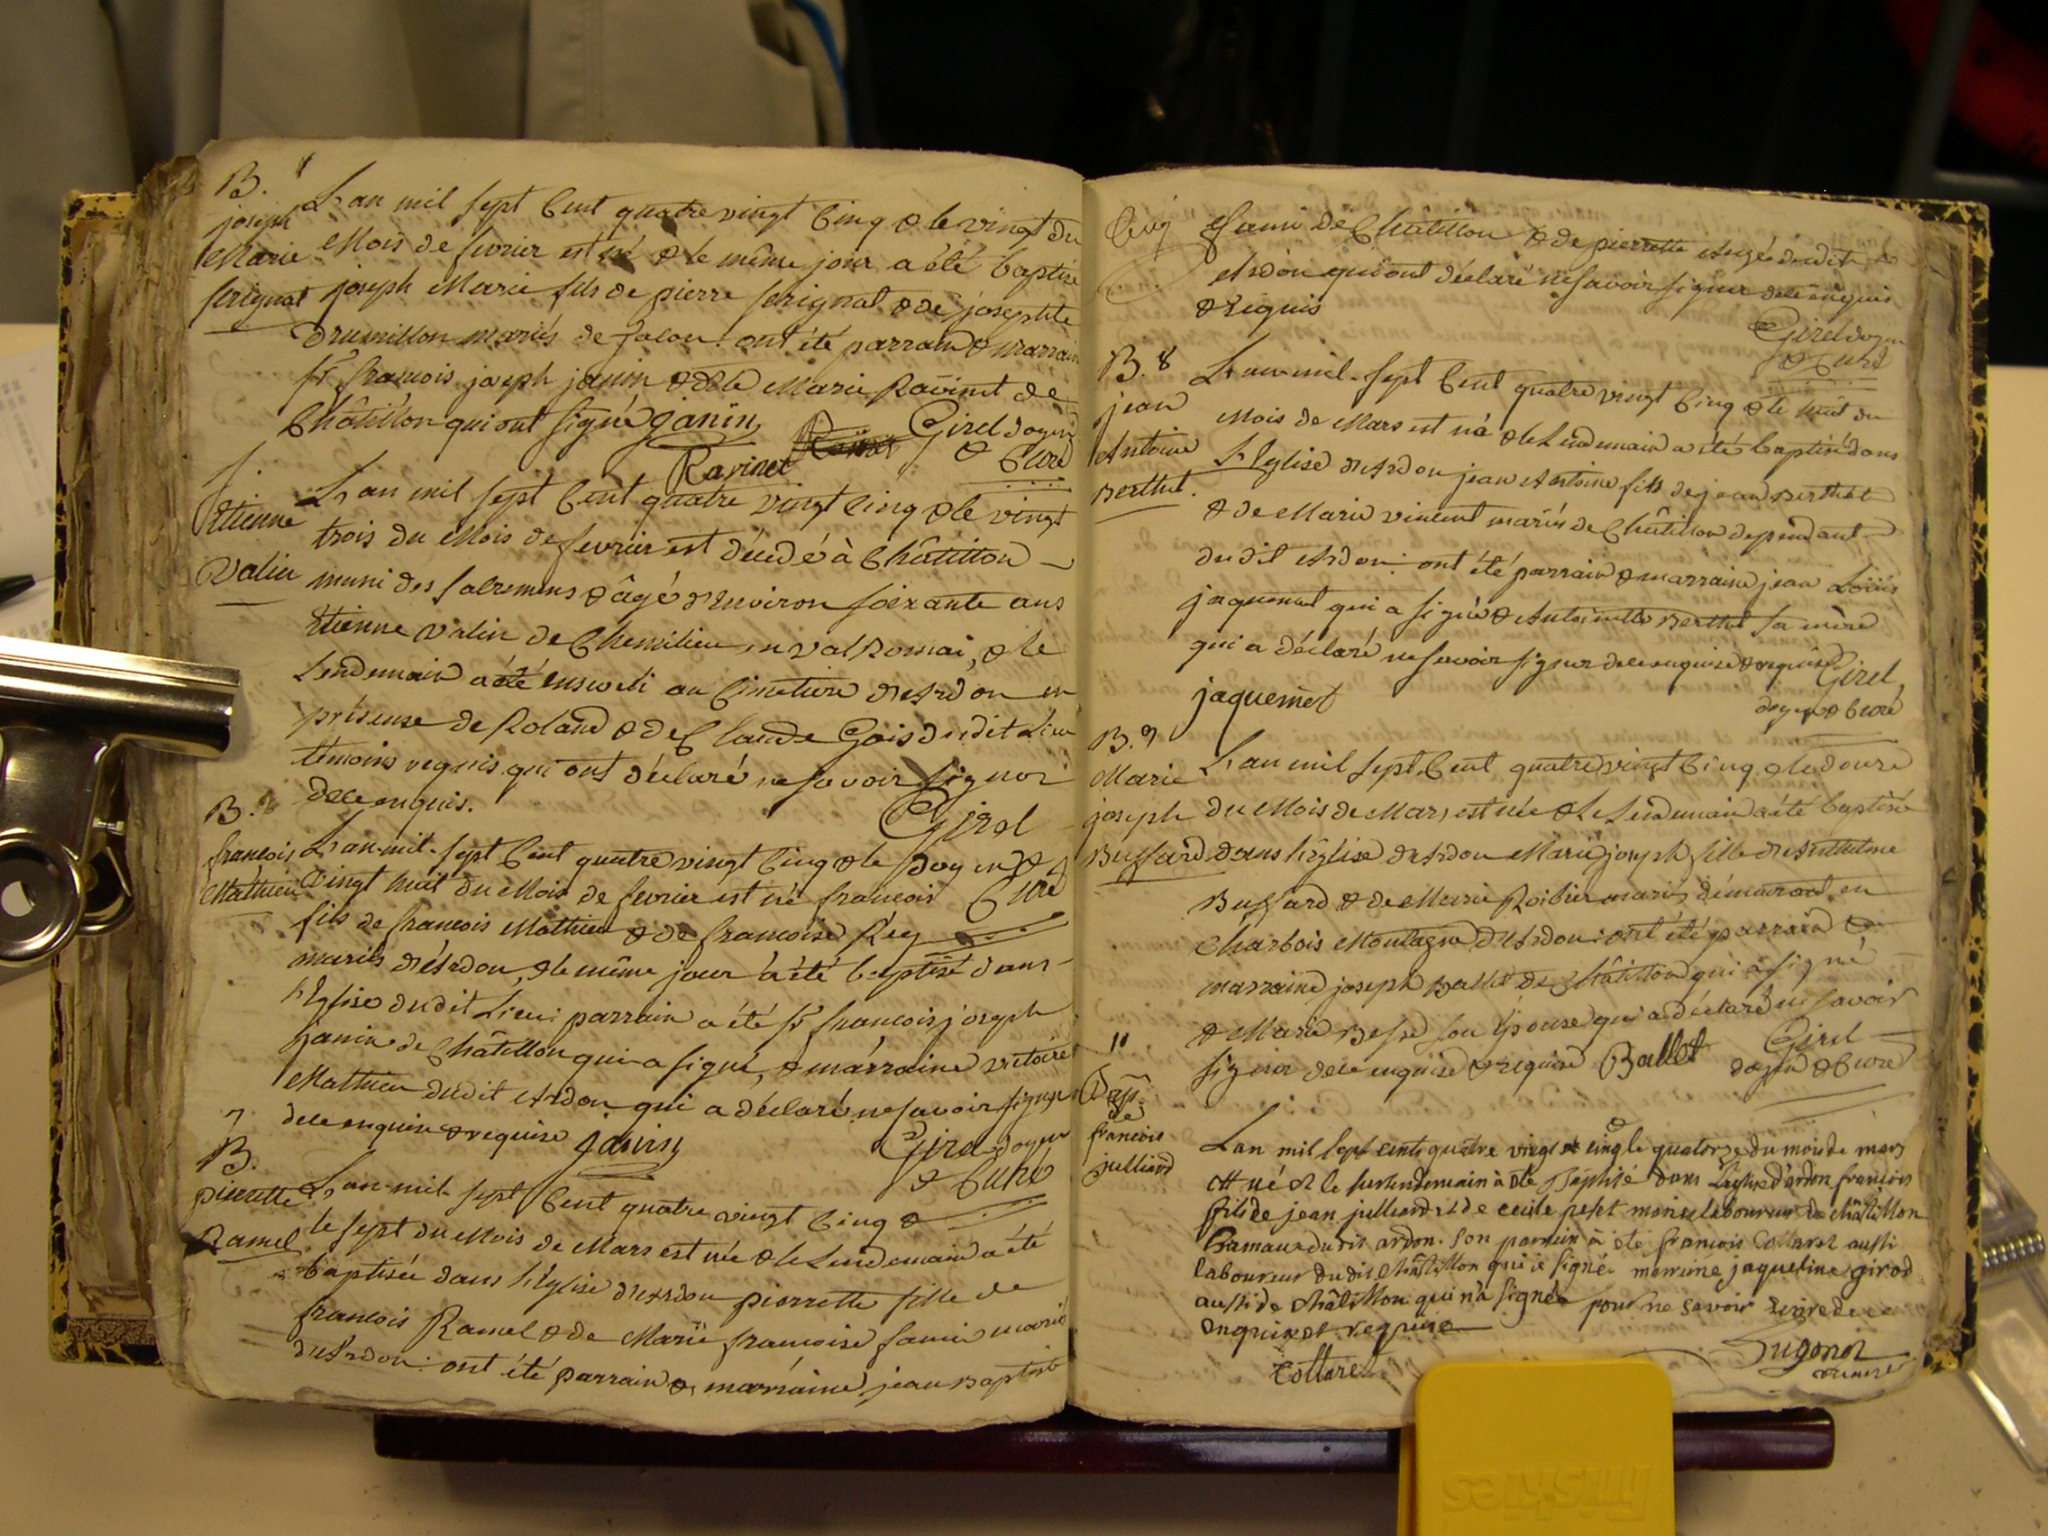 B.
joseph
Marie
serignat
L'an mil sept Cent quatre vingt Cinq & le vingt du
Mois de fevrier est né & le même jour a été baptisé
joseph Marie fils de pierre serignat & de josephte
Drumillon mariés de Jalou: ont été parrain & marraine
sr. francois joseph janin & dlle Marie Ravinet de
Châtillon qui ont signé janin
Ravinet
Girel doyen
& Curé
Etienne
Valin
L'an mil sept Cent quatre vingt Cinq & le vingt
trois du Mois de fevrier est décédé à Châtillon
muni des sacremens & âgé d'environ soixante ans
Etienne Valin de Chemilieu en valRomai, & le
Lendemain a été enseveli au Cimetiere d'Ardon en
présense de Roland & de Claude Gois dudit Lieu
témoins requis qui ont déclaré ne savoir signer
de ce enquis.
Girel
doyen &
Curé
B.
francois
Mathieu
L'an mil sept Cent quatre vingt Cinq & le
vingt huit du Mois de fevrier est né francois
fils de francois Mathieu & de francoise Rey
mariés d'Ardon, & le même jour a été baptisé dans
l'Eglise dudit Lieu: parrain a été sr francois joseph
janin de Châtillon qui a signé, & marraine victoire
Mathieu dudit Ardon qui a déclaré ne savoir signer
de ce enquise & requise janin
Girel doyen
& Curé
7
B.
pierrette
Ramel
L'an mil sept Cent quatre vingt Cinq &
le sept du Mois de Mars est née & le Lendemain a été
baptisée dans l'Eglise d'Ardon pierrette fille de
francois Ramel & de Marie francoise famin mariés
d'Ardon: ont été parrain & marraine jean Baptiste
Cinq
famin de Châtillon & de pierrette Augé dudit
Ardon qui ont déclaré ne savoir signer de ce enquis
& requis
Girel doyen
& Curé
B. 8
jean
Antoine
Berthet.
L'an mil sept Cent quatre vingt Cinq & le huit du
Mois de Mars est né & le Lendemain a été baptisé dans
L'Eglise d'Ardon jean Antoine fils de jean Berthet
& de Marie vincent mariés de Châtillon dependant
dudit Ardon: ont été parrain & marraine jean Loüis
jaquemet qui a signé & Antoinette Berthet sa mère
qui a déclaré ne savoir signer de ce enquise & requise
jaquemet
Girel
doyen & Curé
B. 9
Marie
joseph
Buffard
L'an mil sept Cent quatre vingt Cinq & le douze
du Mois de Mars est née & Le Lendemain a été baptisée
dans l'Eglise d'Ardon Marie joseph fille d'Anthelme
Buffard & de Marie Roibier mariés demeurant en
Charbois Montagne d'Ardon: ont été parrain &
marraine joseph Ballet de Châtillon qui a signé
& Marie Besse son Epouse qui a déclaré ne savoir
signer de ce enquise & requise Ballet
Girel
doyen & Curé
11
Bap.
de
francois
julliard
L'an mil sept cents quatre vingt et cinq le quatorze du mois de mars
est né et le surlendemain à eté Baptisé dans L'eglise d'ardon francois
fils de jean julliard et de cecile petet mariés laboureur de châtillon
hameau dudit ardon. son parrain à eté francois Collaret aussi
laboureur dudit châtillon qui a signé marraine jaqueline girod
aussi de châtillon qui n'à signée pour ne savoir ecrire de ce
enquise et requise
Collaret
Dugonin
vicaire